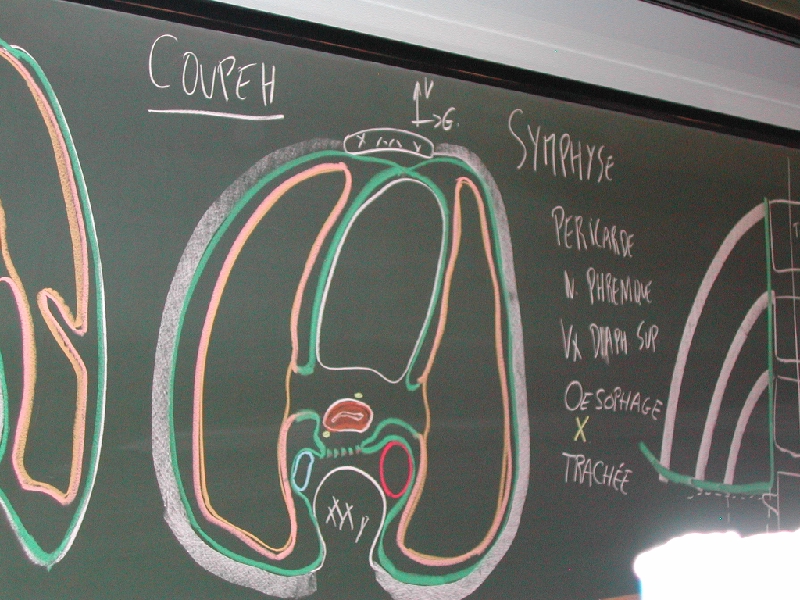 COUPEH
V
G.
SYMPHYSE
PERICARDE
N. PHRENIQUE
VX DIAPH SUP
OESOPHAGE
X
TRACHÉE
T